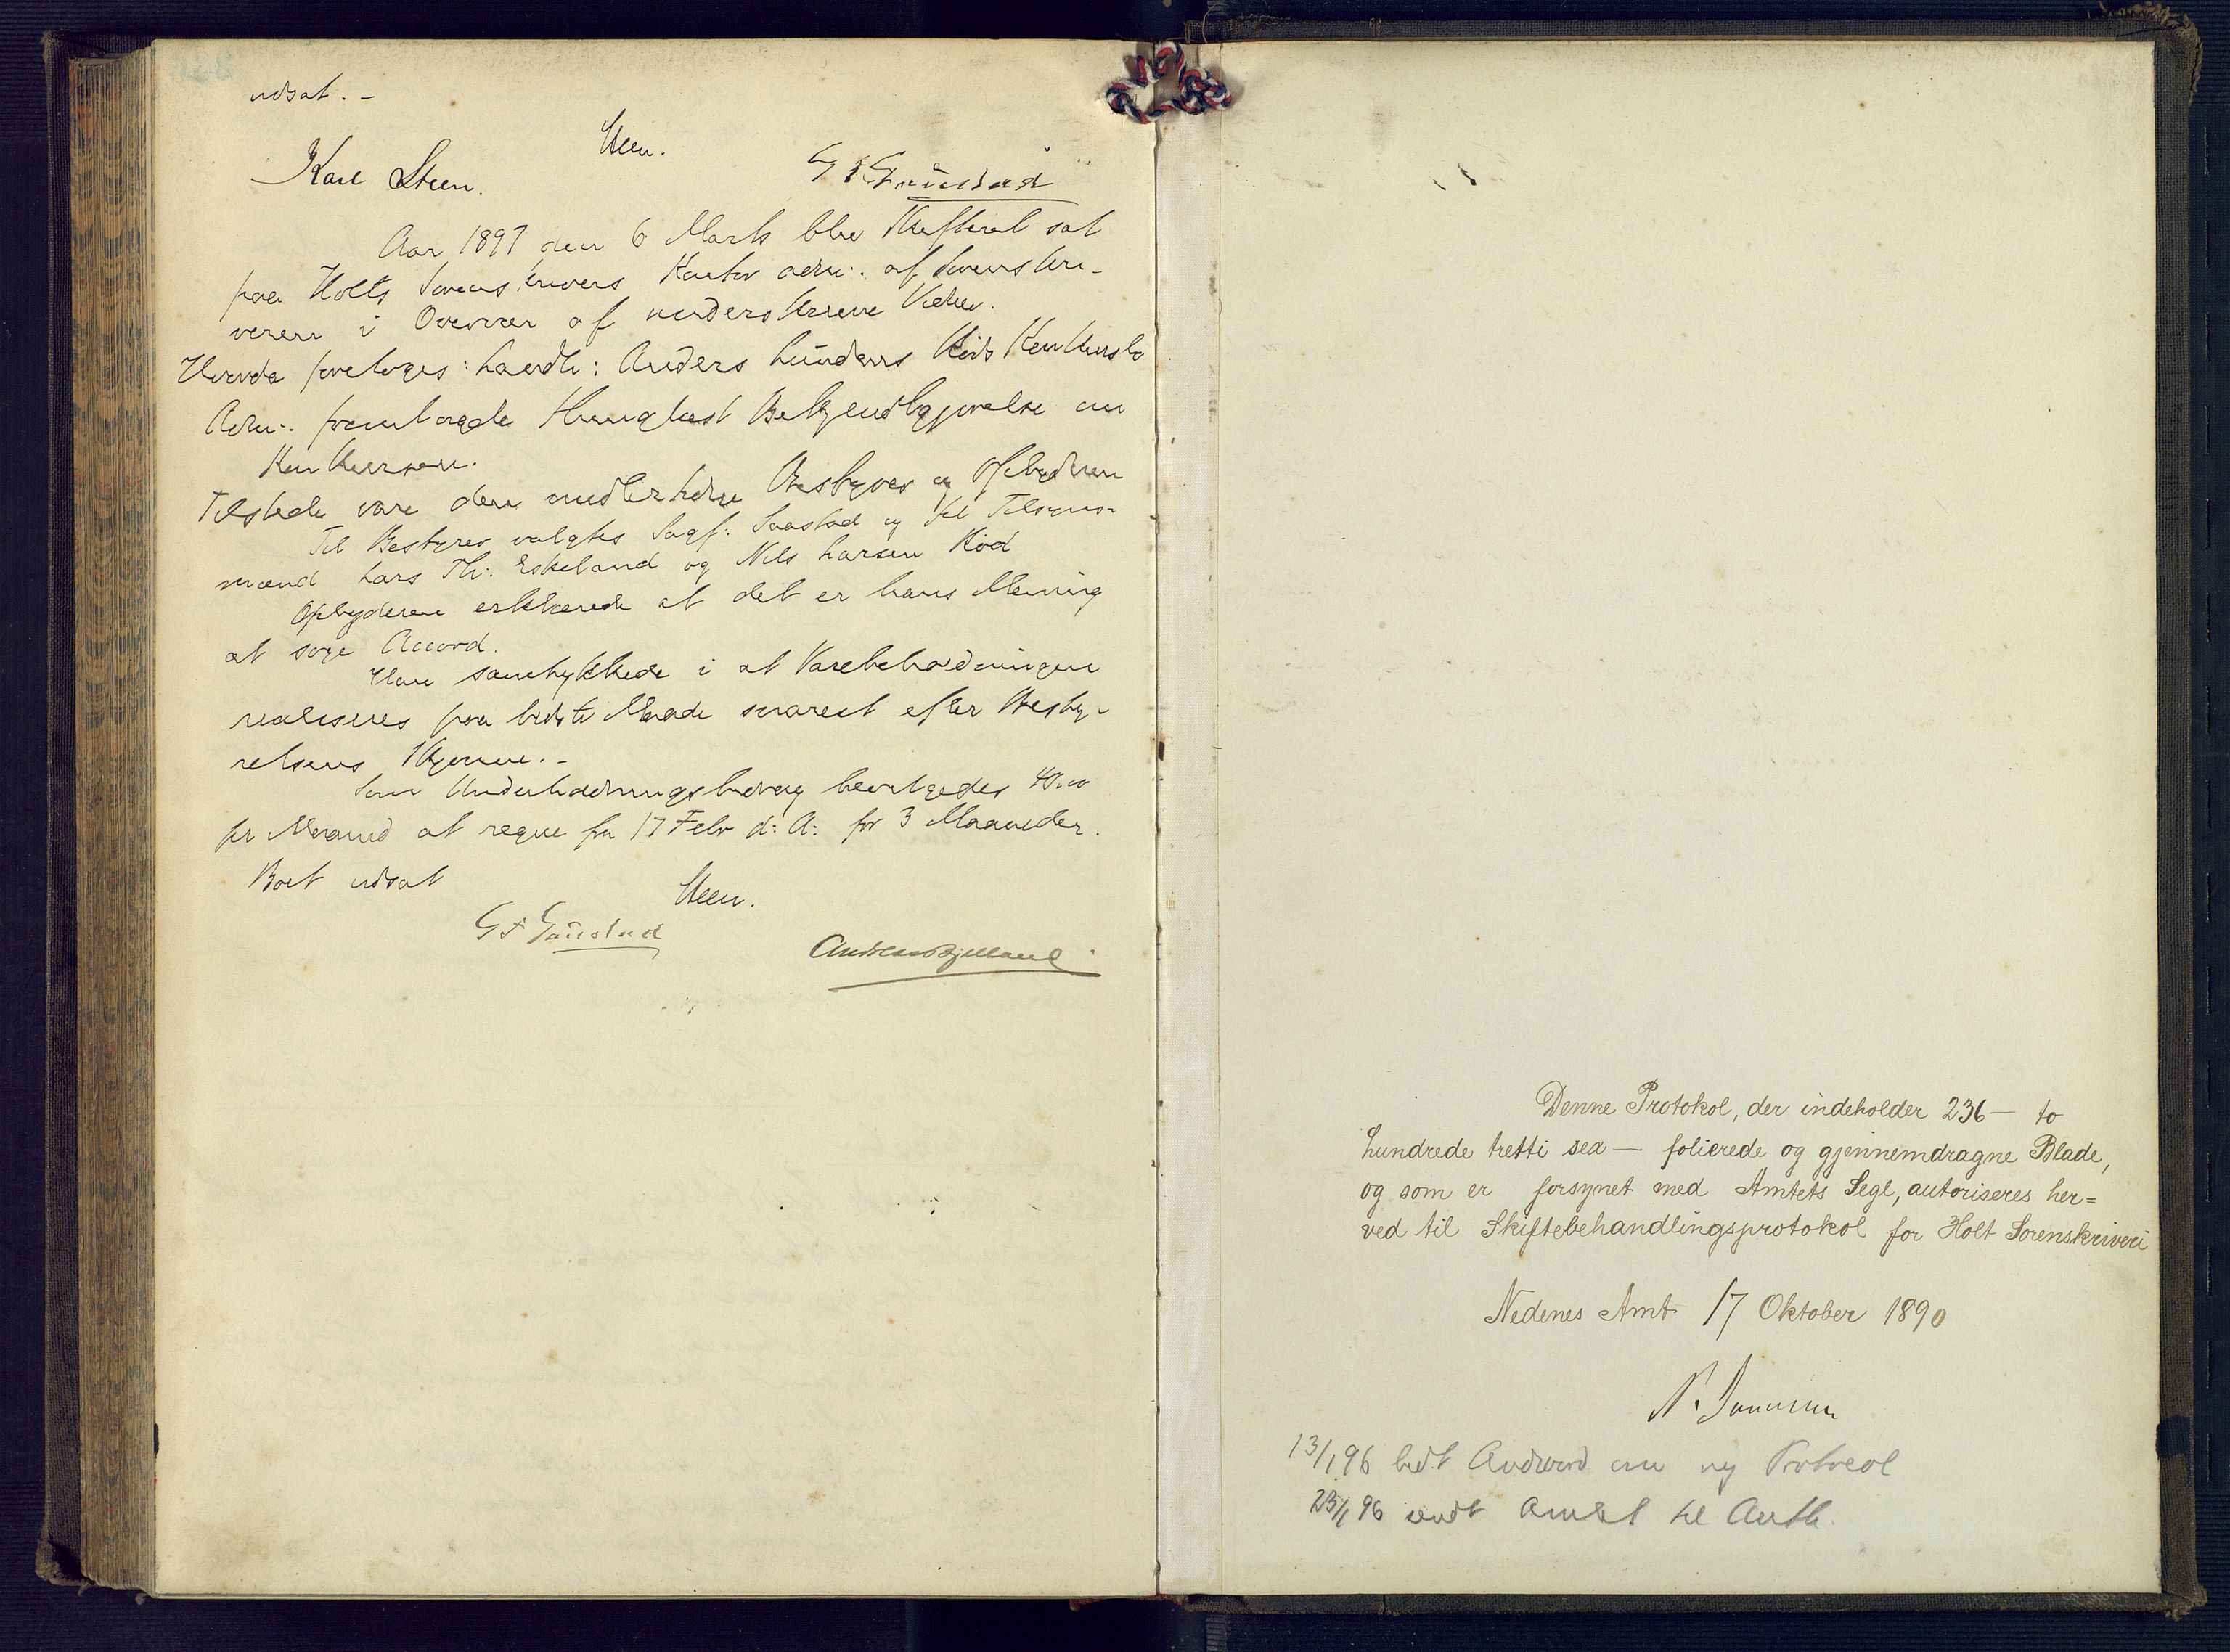 udsat. -
Steen.
Karl Steen.
G F Gaustad
Aar 1897 den 6 Marts blev Skifteret sat
paa Holts Sorenskrivers Kontor adm: af Sorenskri-
veren i Overvær af underskrevne Vidner.
Hvorda foretoges: handl: Anders Knudsens Konkursbo
Adm: fremlagde thinglæst Bekjendtgjørelse om
Konkursen.
Tilstede vare den midlertidige Bestyrer og Opbyderen
Til Bestyrer valgtes Sagf: Saastad og til Tilsyns-
mænd Lars Th: Eskeland og Nils Larsen Kød
Opbyderen erklærede at det er hans Mening
at søge Accord.
Han samtykkede i at Varebeholdningen
realiseres paa bedste Maade snarest efter Besty-
relsens Skjønne. -
Som Underholdningsbidrag bevilgedes 40.00
pr Maaned at regne fra 17 Febr d: A: for 3 Maaneder.
Boet udsat
Steen.
G F Gaustad
Andreas Bjelland
Denne Protokol, der indeholder 236 — to
hundrede tretti sex — folierede og gjennemdragne Blade,
og som er forsynet med Amtets Segl, autoriseres her=
ved til Skiftebehandlingsprotokol for Holt Sorenskriveri
Nedenes Amt 17 Oktober 1890
13/1 96 bedt om ny Protocol
23/1 96 sendt Amtet til Auth.